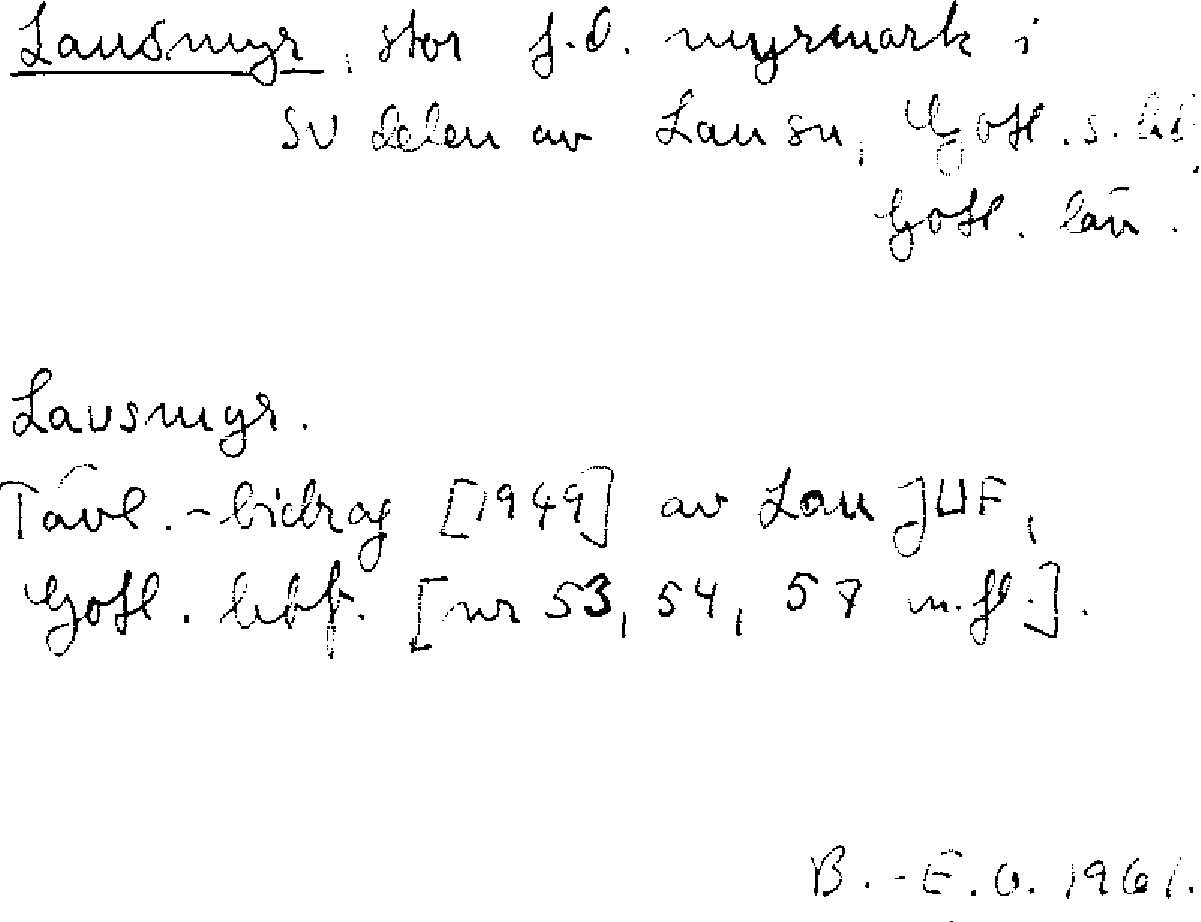 Lausmyr, stor f.d. myrmark i
SV delen av Lau sn, Gotl. s. hd,
Gotl. län.
Lausmyr.
Tävl.-bidrag [1949] av Lau JUF,
Gotl. hbf. [nr 53, 54, 57 m.fl.].
B.-E.O. 1961.